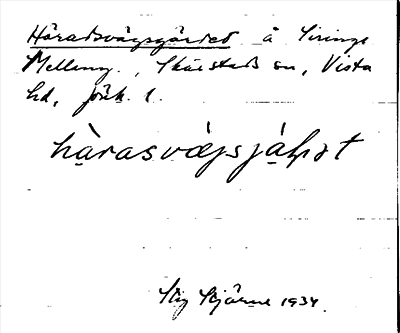 Häradsvägsgärdet å Siringe
Melleng., Skärstads sn, Vista
hd, Jönk. l.
hàrasvägsjäḷṣt
Stig Stjärne 1934.